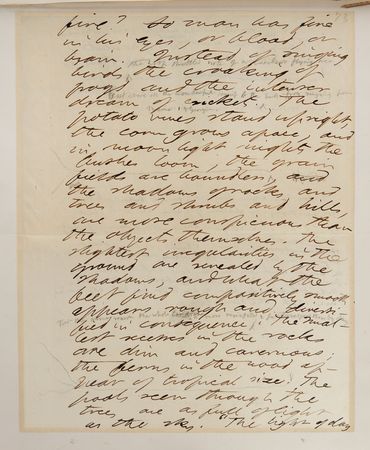 fire? So man has fire
in his eyes, or blood, or
brain. Instead of singing
birds the croaking of
frogs and the intenser
dream of crickets. The
potato vines stand upright,
the corn grows apace, and
in moonlight nights the
bushes loom, the grain
fields are boundless, and
the shadows of rocks and
trees and shrubs and hills,
are more conspicuous than
the objects themselves. The
slightest irregularities in the
ground are revealed by the
shadows, and what the
feet find comparatively smooth
appears rough and diversi-
fied in consequence. The smal-
lest recesses in the rocks
are dim and cavernous;
the ferns in the wood ap-
pear of tropical size. The
pools seen through the
trees are as full of light
as the sky. "The light of day